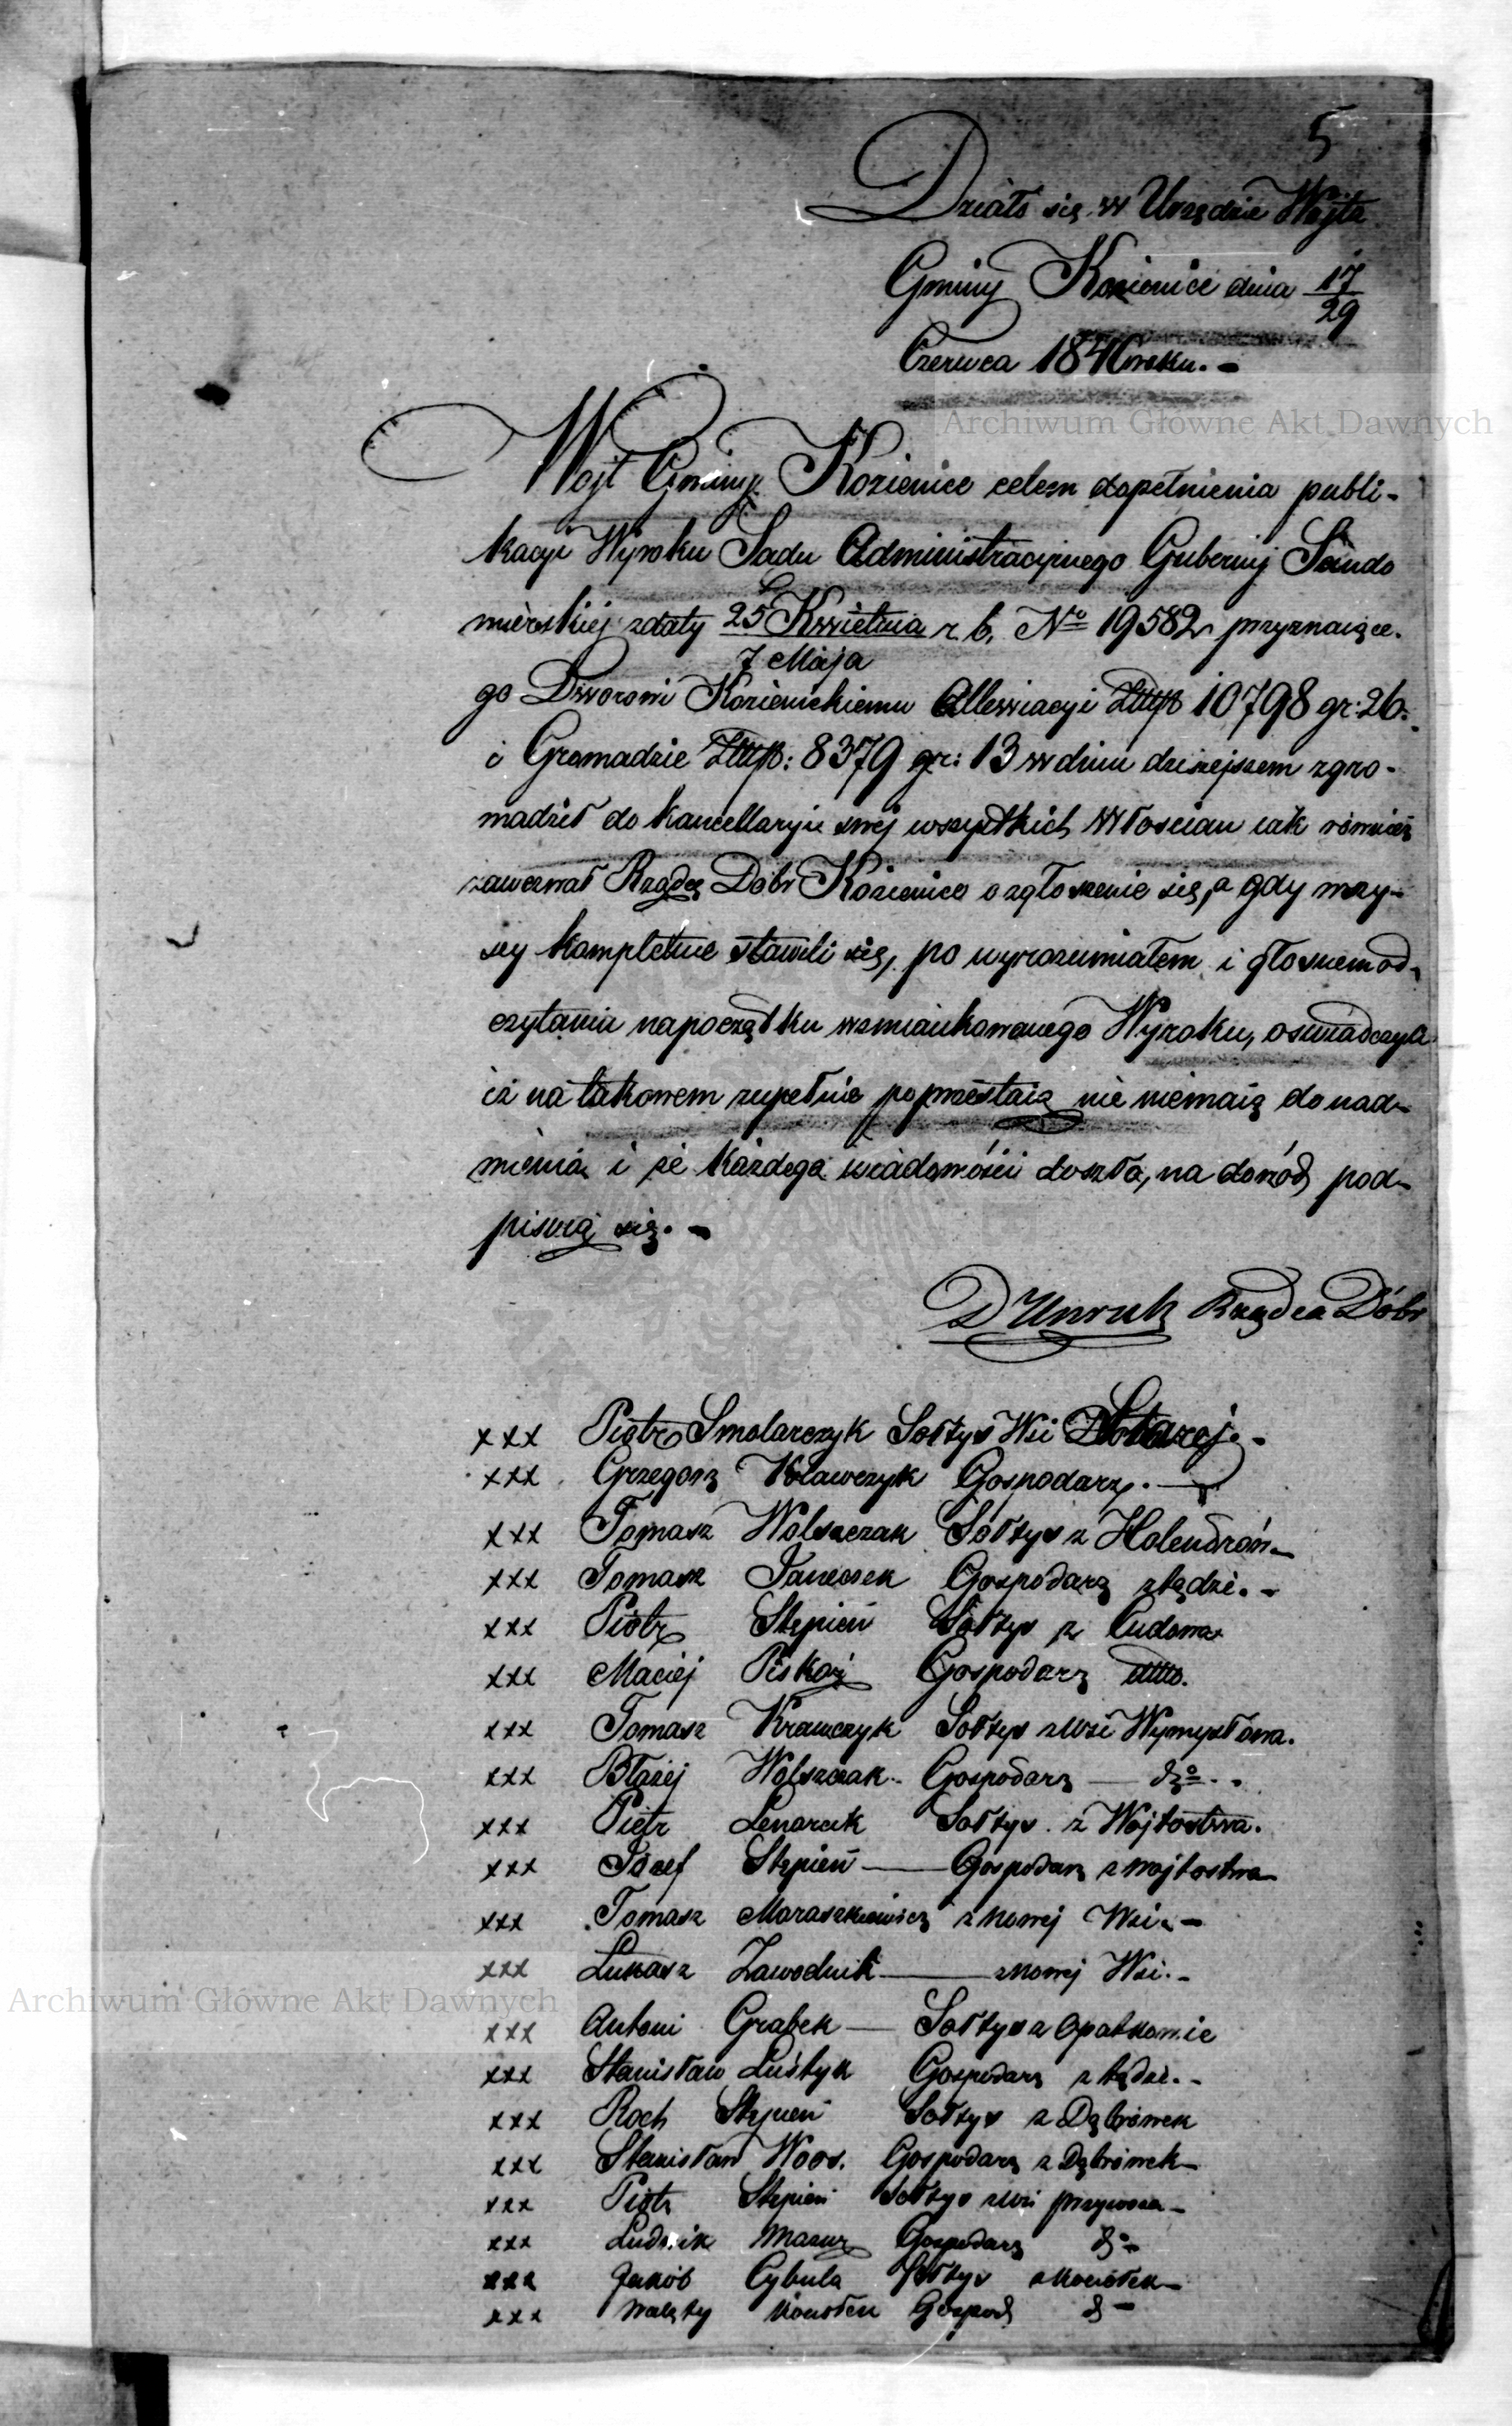 5
Działo się w Urzędzie Wójta
Gminy Kozienice dnia 17/29
Czerwca 1846 roku. -
Archiwum Główne Akt Dawnych
Wójt Gminy Kozienice celem dopełnienia publi-
kacyi Wyroku Sądu Administracyjnego Gubernij Sando
mierskiej z daty 25 Kwietnia r. b. No 19582 przyznaiące-
7 Maja
go Dworowi Kozienickiemu Allewiacyi Złtp 10798 gr: 26.
i Gromadzie Złtp: 8379 gr: 13 w dniu dzisiejszem zgro-
madził do kancellaryi swej wszystkich Włościan iak również
zawezwał Rządcę Dóbr Kozienice o zgłoszenie się, a gdy wszy-
scy kompletnie stawili się, po wyrozumiałem i głosnem od-
czytaniu na początku wzmiankowanego Wyroku, oswiadczyli
iż na takowem zupełnie poprzestaią nic niemaią do nad-
mienia i że każdego wiadomości doszło, na dowód pod-
pisuią się. -
D Unruh Rządca Dóbr
xxx Piotr Smolarczyk Sołtys Wsi Starej. -
xxx Grzegorz Krawczyk Gospodarz. —
xxx Tomasz Wolszczak Sołtys z Holendrów -
xxx Tomasz Janeczek Gospodarz ztądże. -
xxx Piotr Stępień Sołtys z Cudowa
xxx Maciej Piskorz Gospodarz ditto.
xxx Tomasz Krawczyk Sołtys z Wsi Wymysłowa.
xxx Błażej Wolszczak - Gospodarz — do. -
xxx Piotr Lenarcik Sołtys z Wójtostwa.
xxx Józef Stępień — Gospodarz z Wójtostwa
xxx Tomasz Moraszkiewicz z Nowej Wsi. -
xxx Łukasz Zawodnik — z Nowej Wsi. -
Archiwum Główne Akt Dawnych
xxx Antoni Grabek — Sołtys z Opatkowic
xxx Stanisław Luśtyk Gospodarz ztądże. -
xxx Roch Stępień Sołtys z Dąbrówek
xxx Stanisław Woos. Gospodarz z Dąbrówek -
xxx Piotr Stępień Sołtys z Wsi -
xxx Ludwik Mazur Gospodarz do -
xxx Jakób Cybula Sołtys z Kociołek -
xxx Walęty Gospod do -